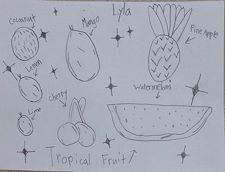 Lyla
Coconut
Mango
Pine Apple
Lemon
Watermelon
Cherry
Lime
Tropical Fruit